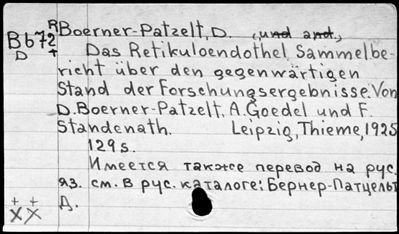 R Boerner-Patzelt, D. (und and.)
Bb72
D +
Das Retikuloendothel, Sammelbe-
richt über den gegenwärtigen
Stand der Forschungsergebnisse. Von
D. Boerner-Patzelt, A. Goedel und F.
Standenath. Leipzig, Thieme, 1925
129 s.
Имеется также перевод на рус.
яз. см. в рус. каталоге: Бернер-Патцельт
Д.
++
XX